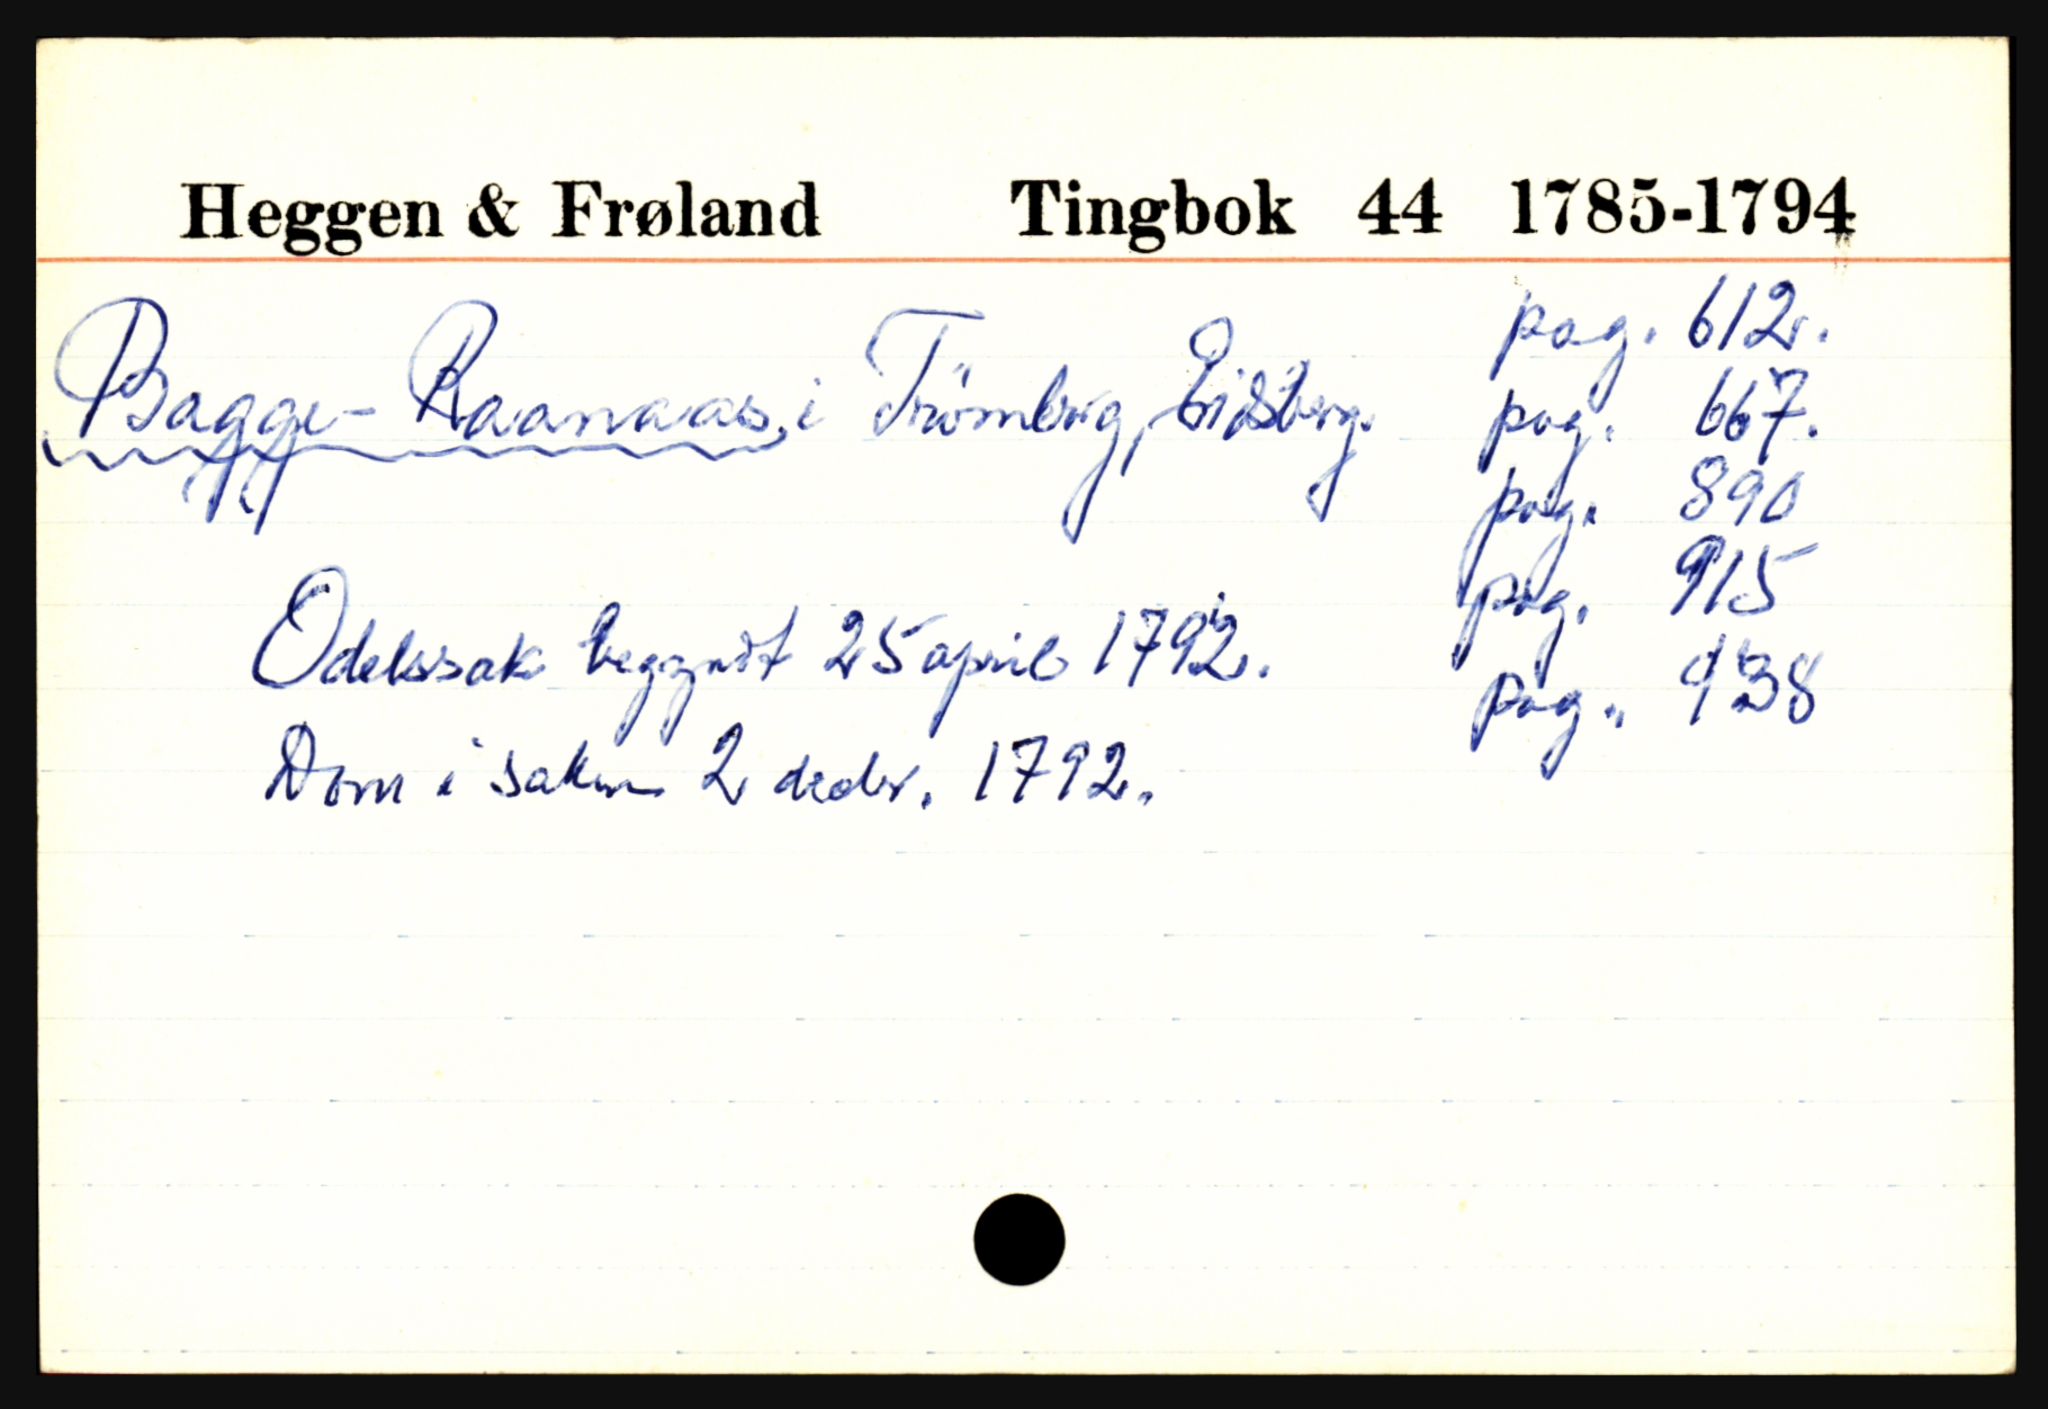 Heggen & Frøland Tingbok 44 1785-1794
Bagge-Raanaas i Trömborg, Eidsberg. pag. 612.
pag. 667.
pag. 890
pag. 915
pag. 938
Odelssak begynt 25 april 1792.
Dom i saken 2 decbr. 1792.